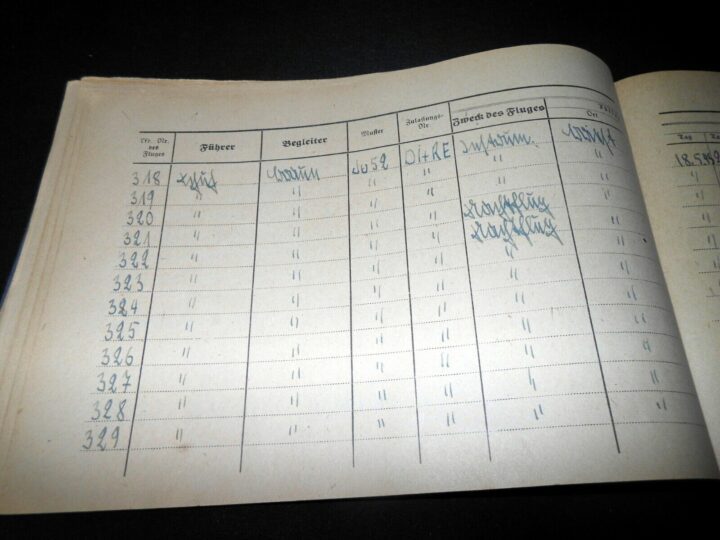 Lfd. Nr. des Fluges Führer Begleiter Muster Zulassungs-Nr. Zweck des Fluges Ort Tag
318 Ju52 Instrum. 18.5.
319 " " " " " "
320 " " " " Nachtflug "
321 " " " " Nachtflug "
322 " " " " " "
323 " " " " " "
324 " " " " " "
325 " " " " " "
326 " " " " " "
327 " " " " " "
328 " " " " " "
329 " " " " " "